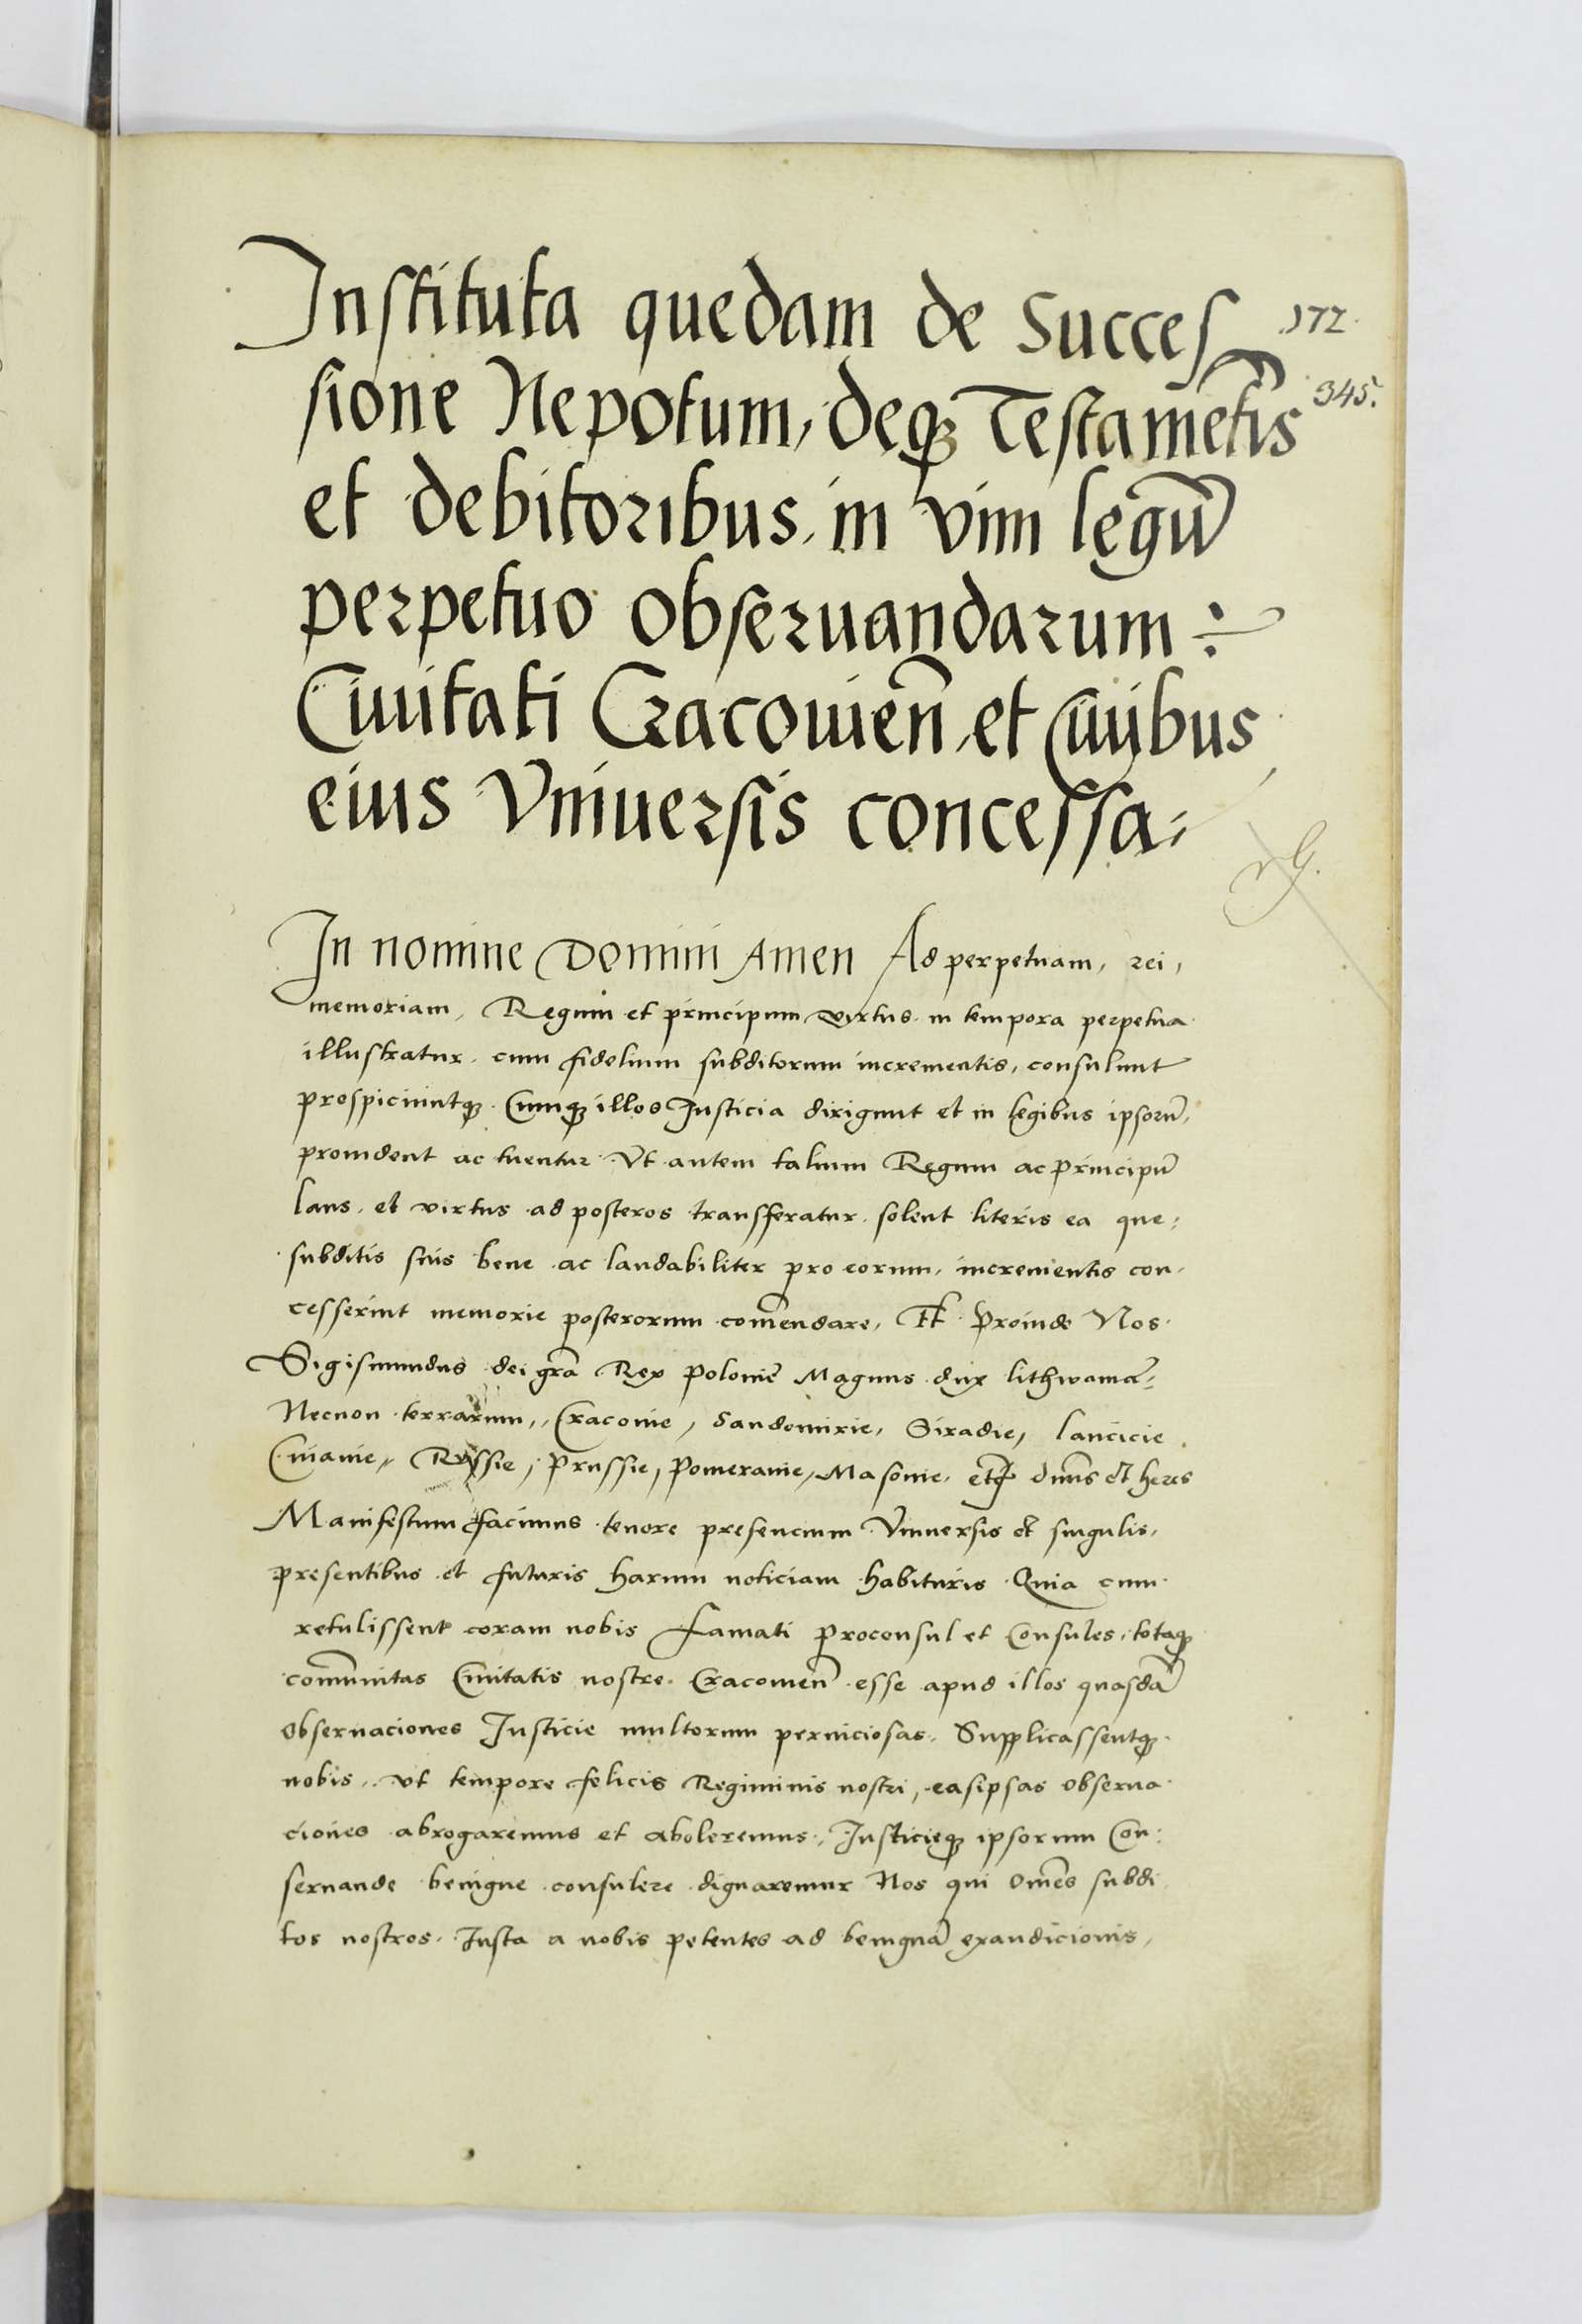 Instituta quedam de Succes
172
sione Nepotum, deqꝫ Testamẽtis
345.
et debitoribus, in vim legũ
perpetuo obseruandarum ÷
Ciuitati Cracouieñ, et Ciuibus
eius Vniuersis concessa:
In nomine Domini Amen Ad perpetuam, rei,
memoriam, Regum et principum virtus in tempora perpetua
illustratur, cum fidelium subditorum incrementis, consulunt
prospiciuntqꝫ Cumqꝫ illos Justicia dirigunt et in legibus ipsorũ,
prouident ac tuentur Vt autem talium Regum ac principũ
laus, et virtus ad posteros transferatur, solent literis ea que:
subditis suis bene ac laudabiliter pro eorum, incrementis con,
cesserint memorie posterorum com̃endare, Proinde Nos
Sigismundus dei grã Rex Polonie Magnus dux lithwaniẽ:
Necnon terrarum,, Cracouie, Sandomirie, Siradie, lancicie
Cuiauie,, Russie, Prussie, Pomeranie, Masouie, etc̃ dñus et heres
Manifestum facimus tenore presencium Vniuersis et singulis,
presentibus et futuris harum noticiam habituris Quia cum
retulissent coram nobis famati proconsul et Consules, totaqꝫ
com̃unitas Ciuitatis nostre Cracouieñ esse apud illos quasdã
obseruaciones Justicie multorum perniciosas. Supplicassentqꝫ
nobis,, vt tempore felicis Regiminis nostri, easipsas obserua
ciones abrogaremus et aboleremus, Justicieqꝫ ipsorum Con:
seruande benigne consulere dignaremur Nos qui om̃es subdi
tos nostros Justa a nobis petentes ad benignã exaudicionis,